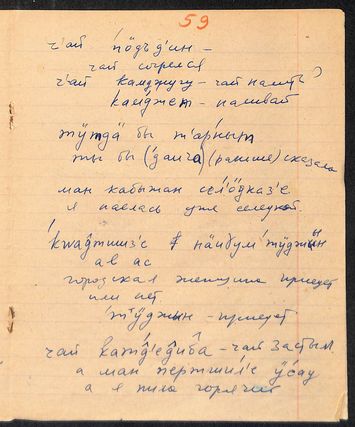 59
ч'ай п̄öдъд'ин –
чай согрелся
ч'ай камджугу – чай налить?
камджет – наливай
тӱтдӓ бы т'арным
ты бы (давча) (раньше) сказала
ман кабыжан сел'öдказ'е
я наелась уже селедкой.
квадтшиз'е нӓйгум тӱджын
ав ас
городская женщина приедет
или нет.
тӱджын – приедет
чай катд'едиба – чай застыл
а ман пертшил'е ӱсау
а я пила горячий